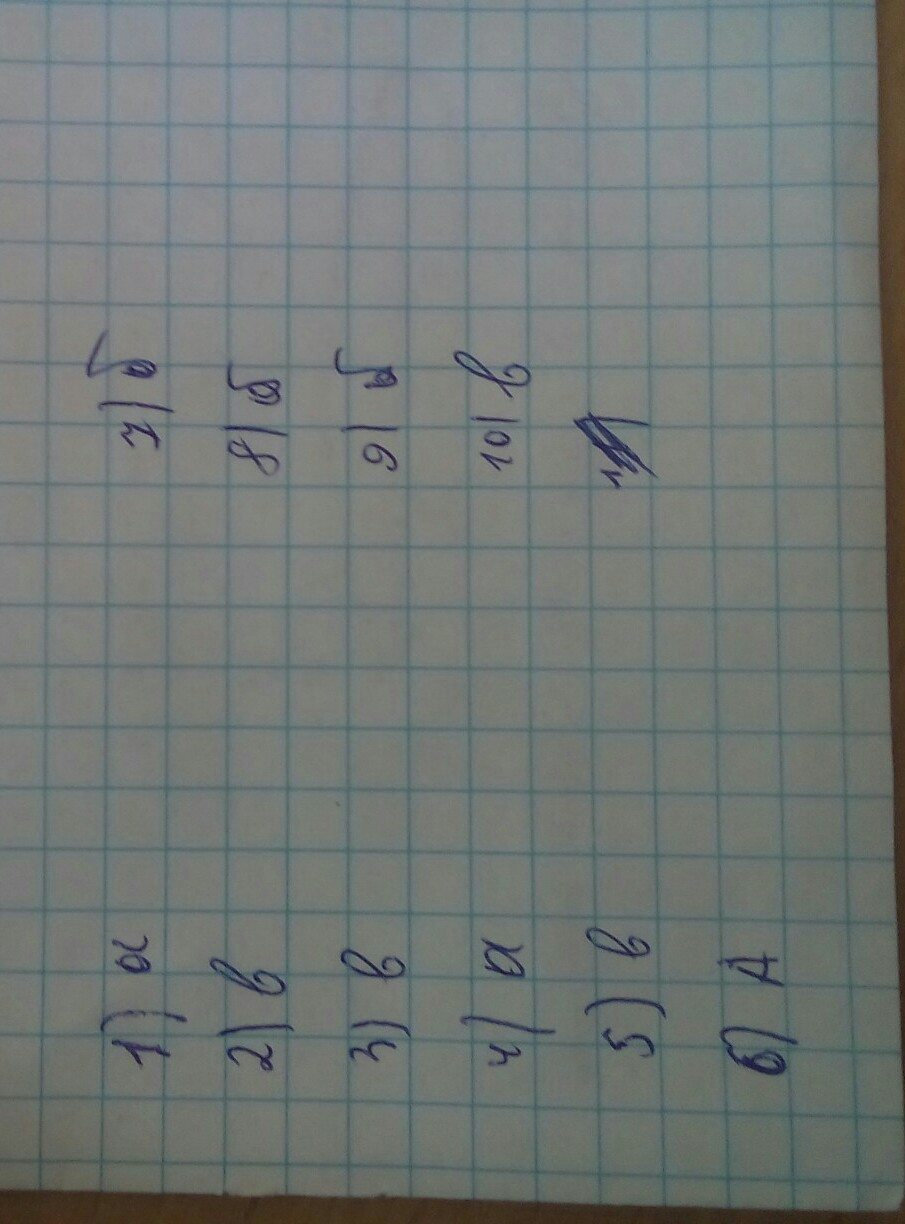 1) а
2) в
3) в
4) а
5) в
6) А
7) б
8) б
9) б
10) в